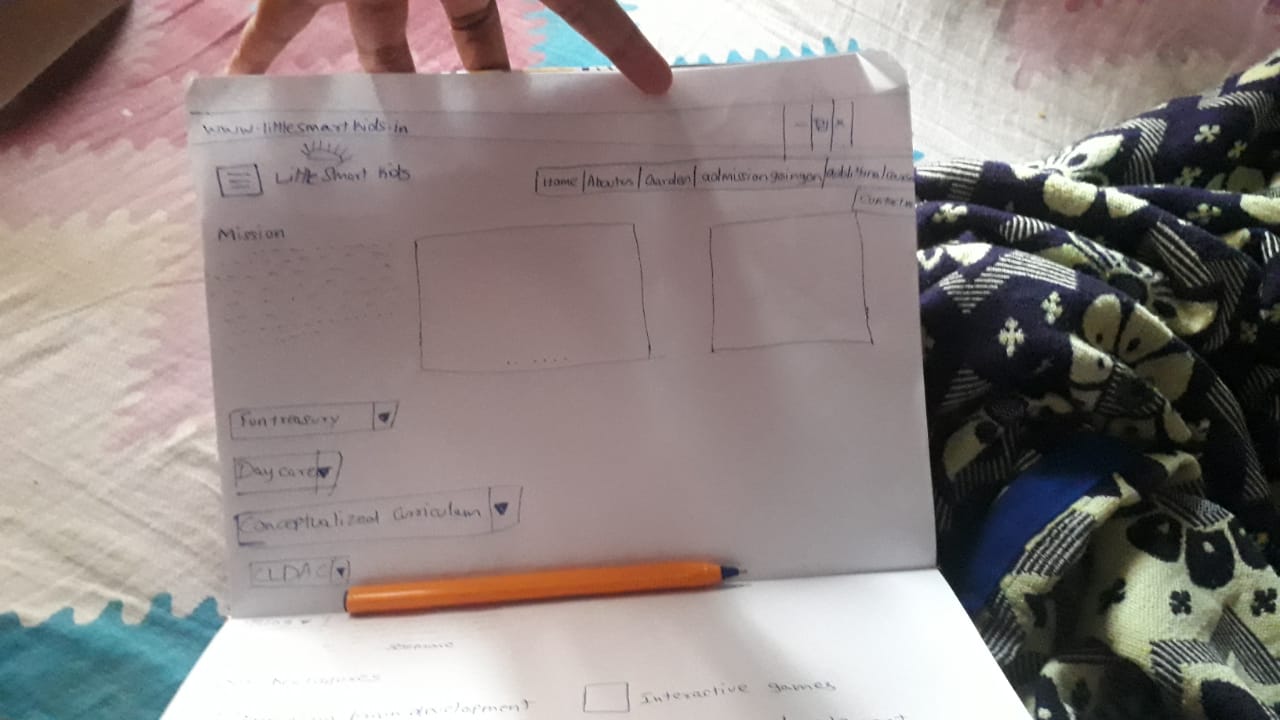 www.littlesmartkids.in
Little Smart Kids
Home | About us | Garden | admission going on | additional
Contact
Mission
Fun treasury
Day care
Conceptualized Curriculum
CLDAC
Interactive games
development